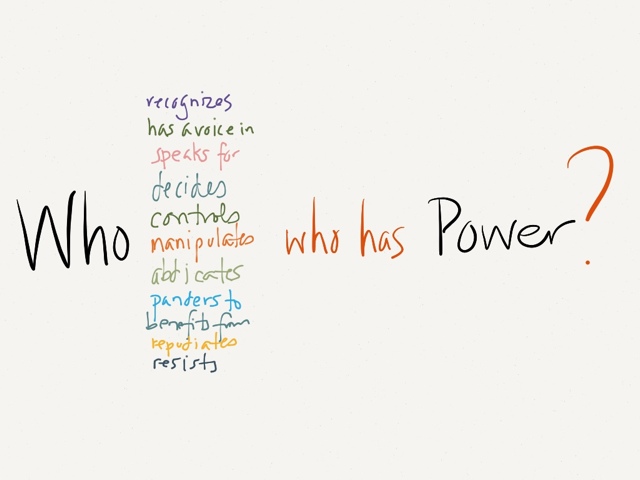 Who
recognizes
has a voice in
speaks for
decides
controls
manipulates
abdicates
panders to
benefits from
repudiates
resists
who has Power?